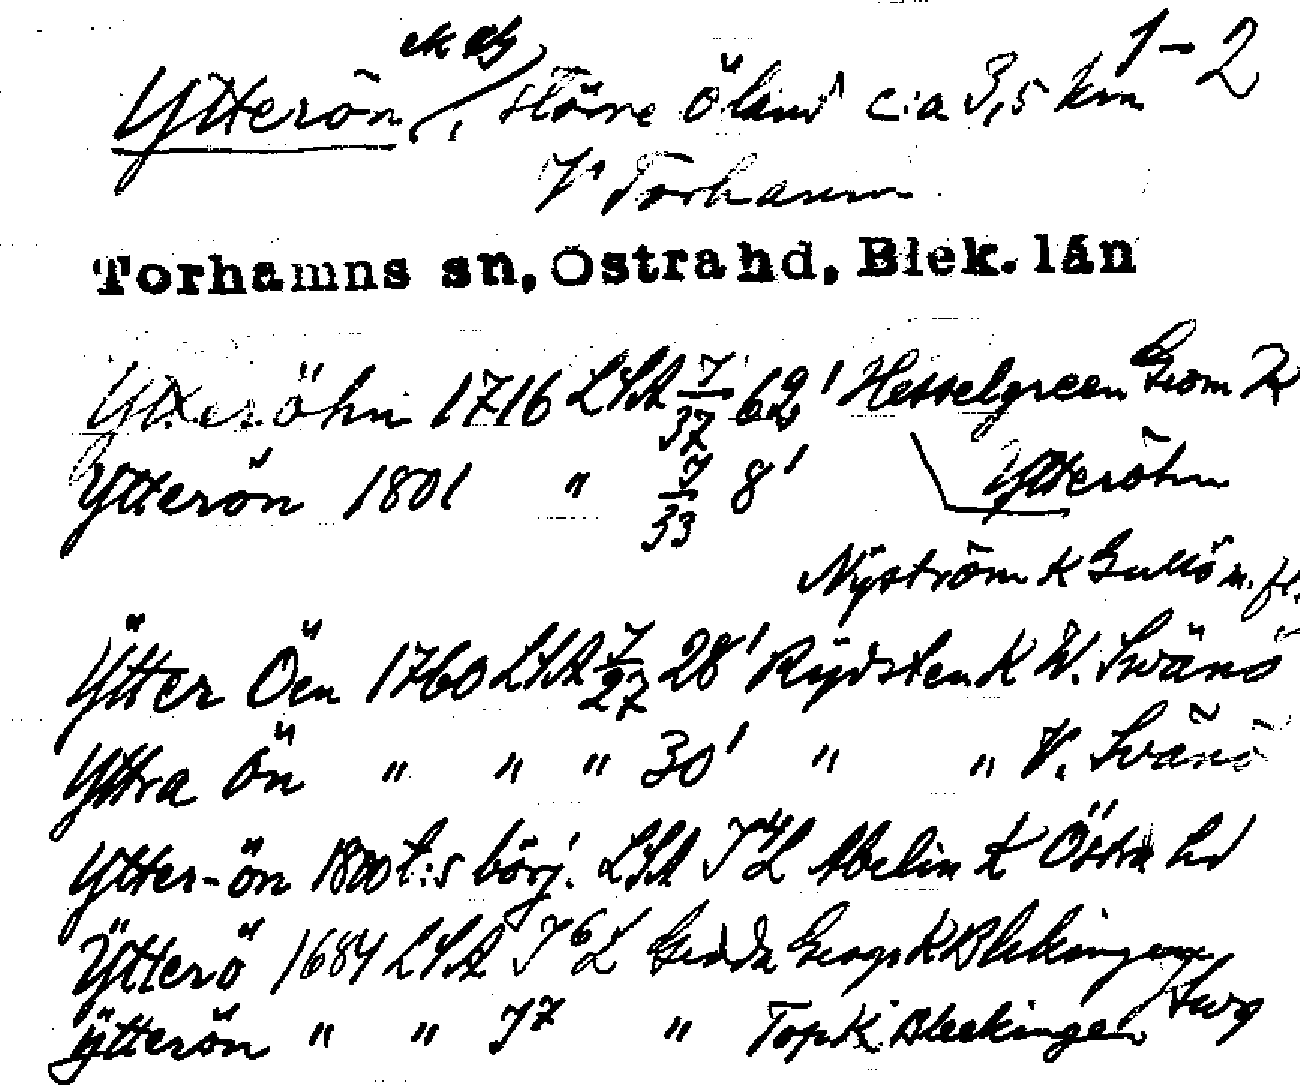 ek AB 1-2
Ytterön, större öland c:a 3,5 km
V Torhamn
Torhamns sn, Östra hd, Blek. län
Ytteröhn 1716 LSA 7/37 62¹ Hesselgreen Geom K
Ytterön 1801 " 7/33 8¹ Ytteröhn
Nyström K m. fl.
Ÿtter Öen 1760 LSA 7/27 28¹ Rydsten K W. Svänö
Yttra ön " " " 30¹ " " V. Svänö
Ytter-ön 1800 t:s börj. LSA J⁴L Abelin K Östra hd
Ÿtterö 1684 LSA J⁶L Gedda Geogr K Blekingen
Ÿtterön " " J⁷ " Top K Bleekingen